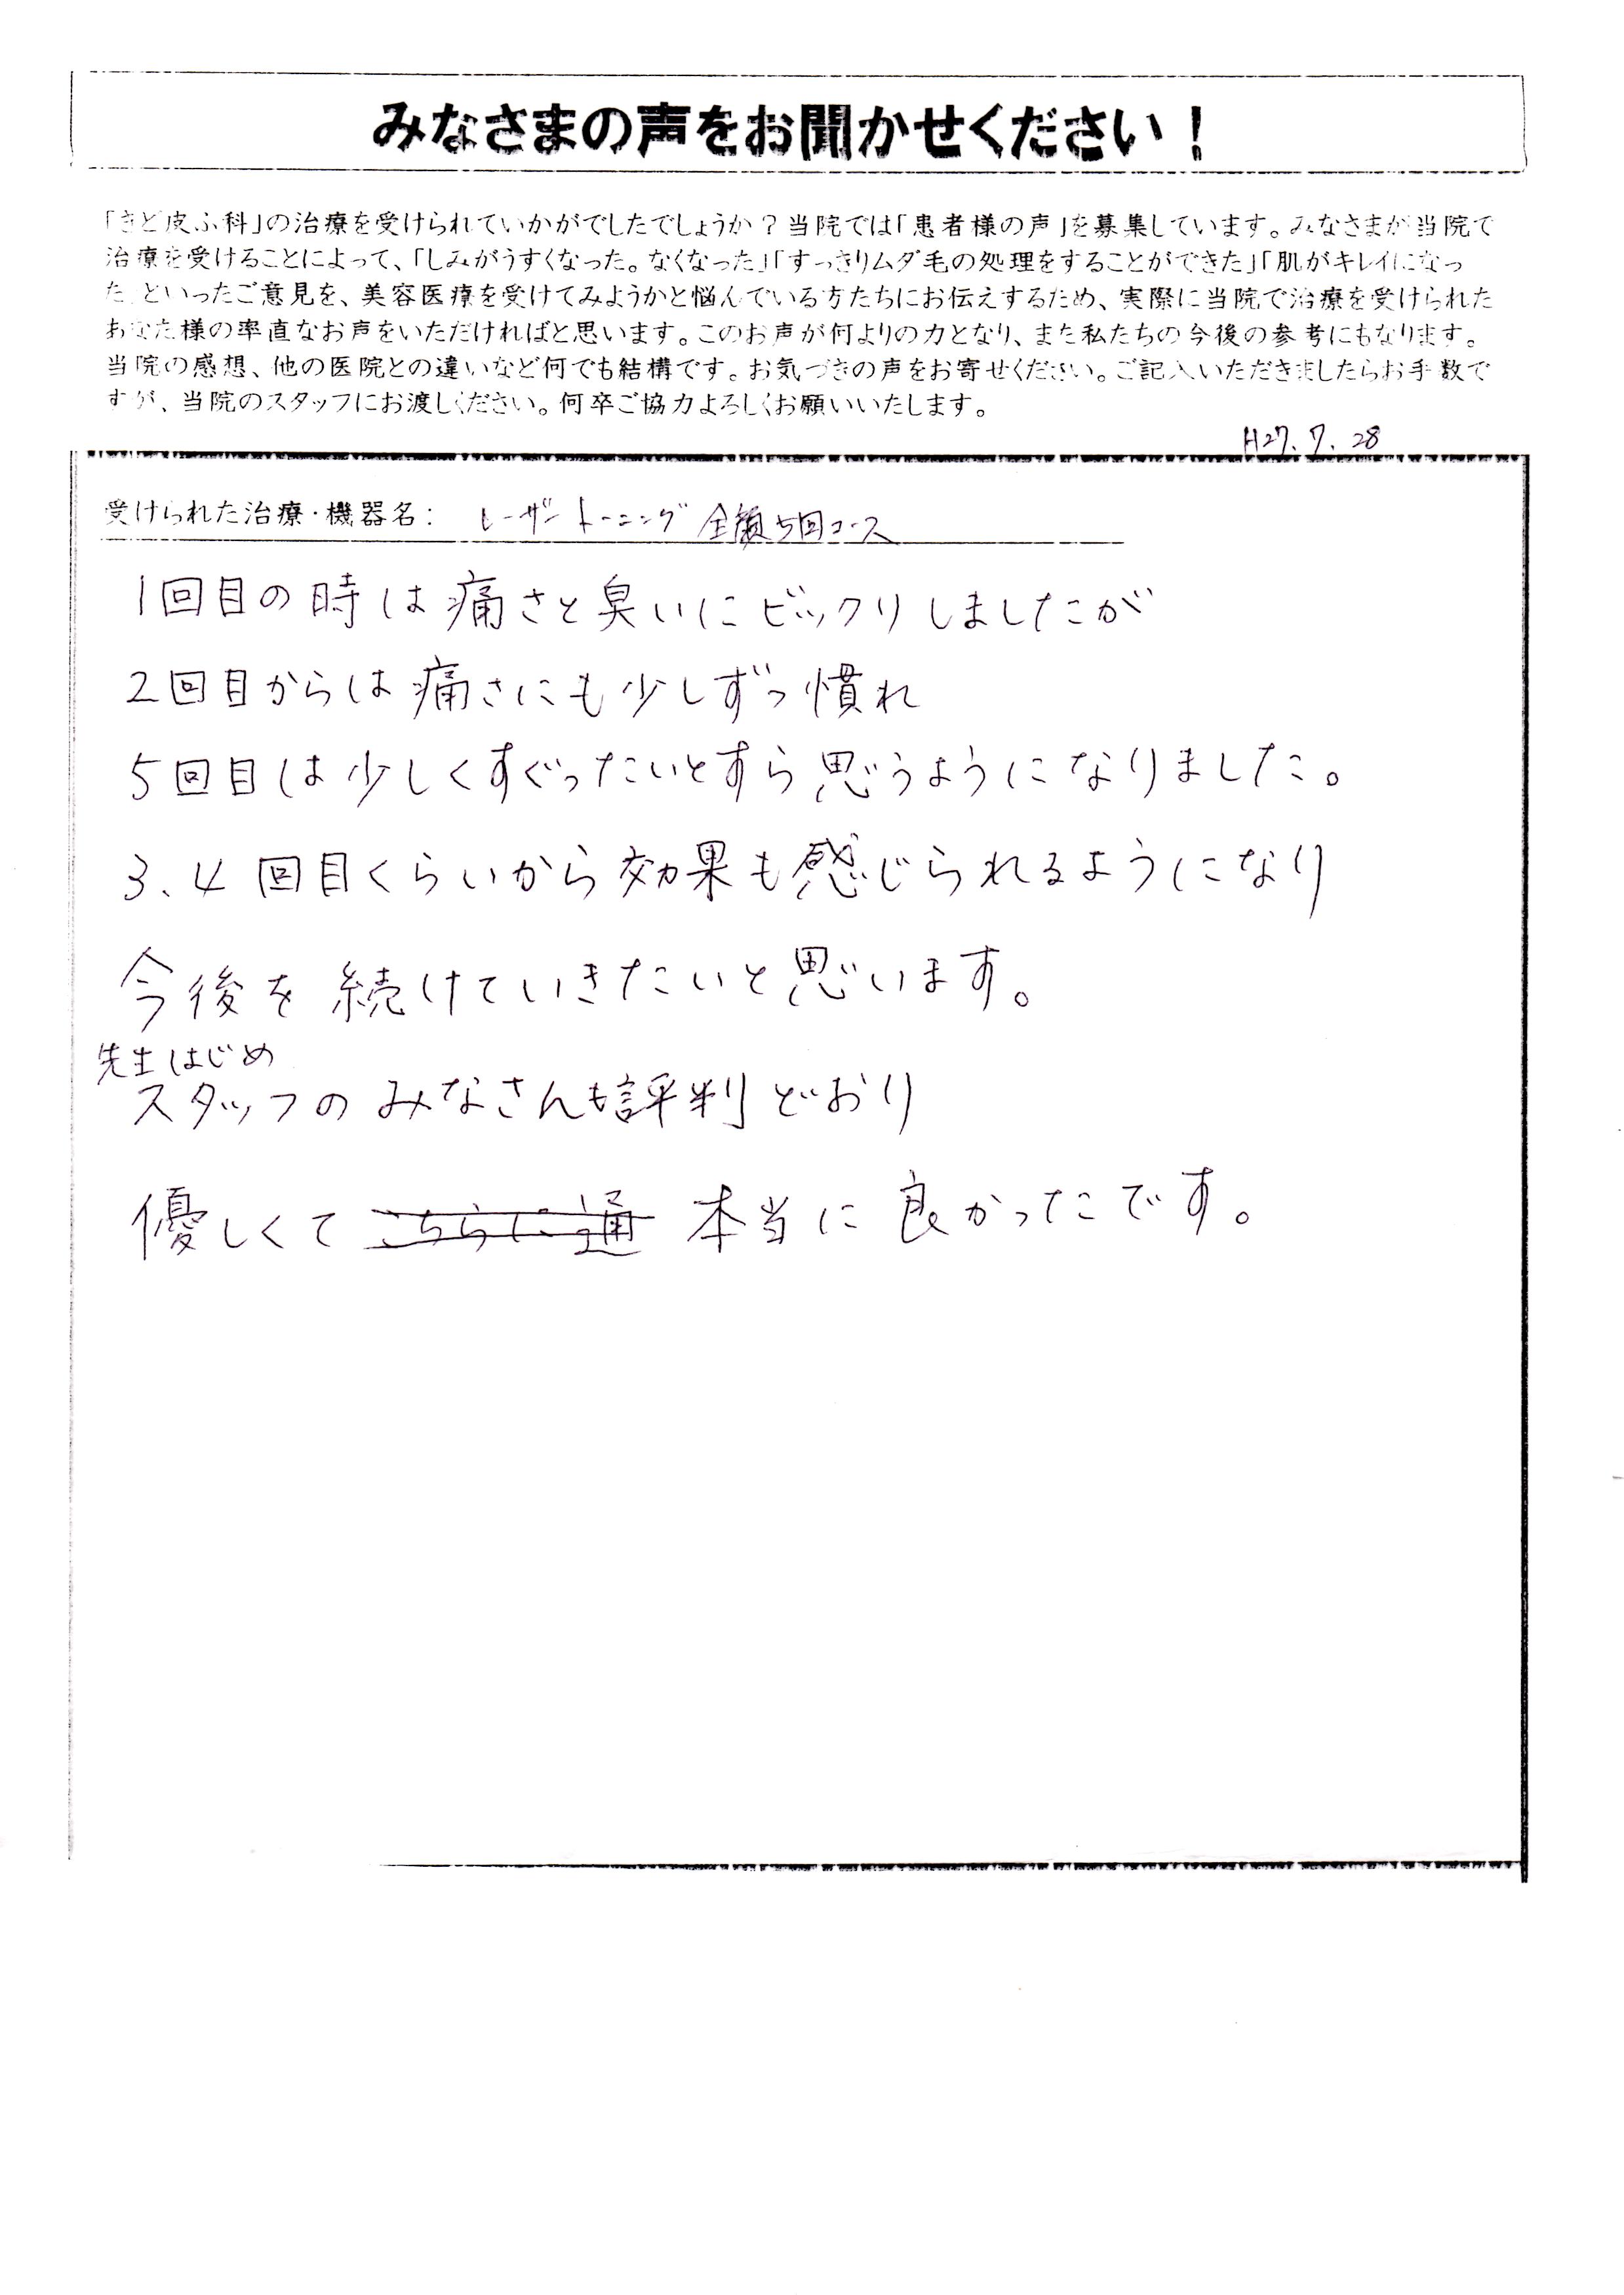 みなさまの声をお聞かせください！
「きど皮ふ科」の治療を受けられていかがでしたでしょうか？当院では「患者様の声」を募集しています。みなさまが当院で
治療を受けることによって、「しみがうすくなった。なくなった」「すっきりムダ毛の処理をすることができた」「肌がキレイになっ
た」といったご意見を、美容医療を受けてみようかと悩んでいる方たちにお伝えするため、実際に当院で治療を受けられた
あなた様の率直なお声をいただければと思います。このお声が何よりの力となり、また私たちの今後の参考にもなります。
当院の感想、他の医院との違いなど何でも結構です。お気づきの声をお寄せください。ご記入いただきましたらお手数で
すが、当院のスタッフにお渡しください。何卒ご協力よろしくお願いいたします。
H27.7.28
受けられた治療・機器名： レーザートーニング 全顔5回コース
1回目の時は痛さと臭いにビックリしましたが
2回目からは痛さにも少しずつ慣れ
5回目は少しくすぐったいとすら思うようになりました。
3、4回目くらいから効果も感じられるようになり
今後を続けていきたいと思います。
先生はじめ
スタッフのみなさんも評判どおり
優しくて こちらに通 本当に良かったです。